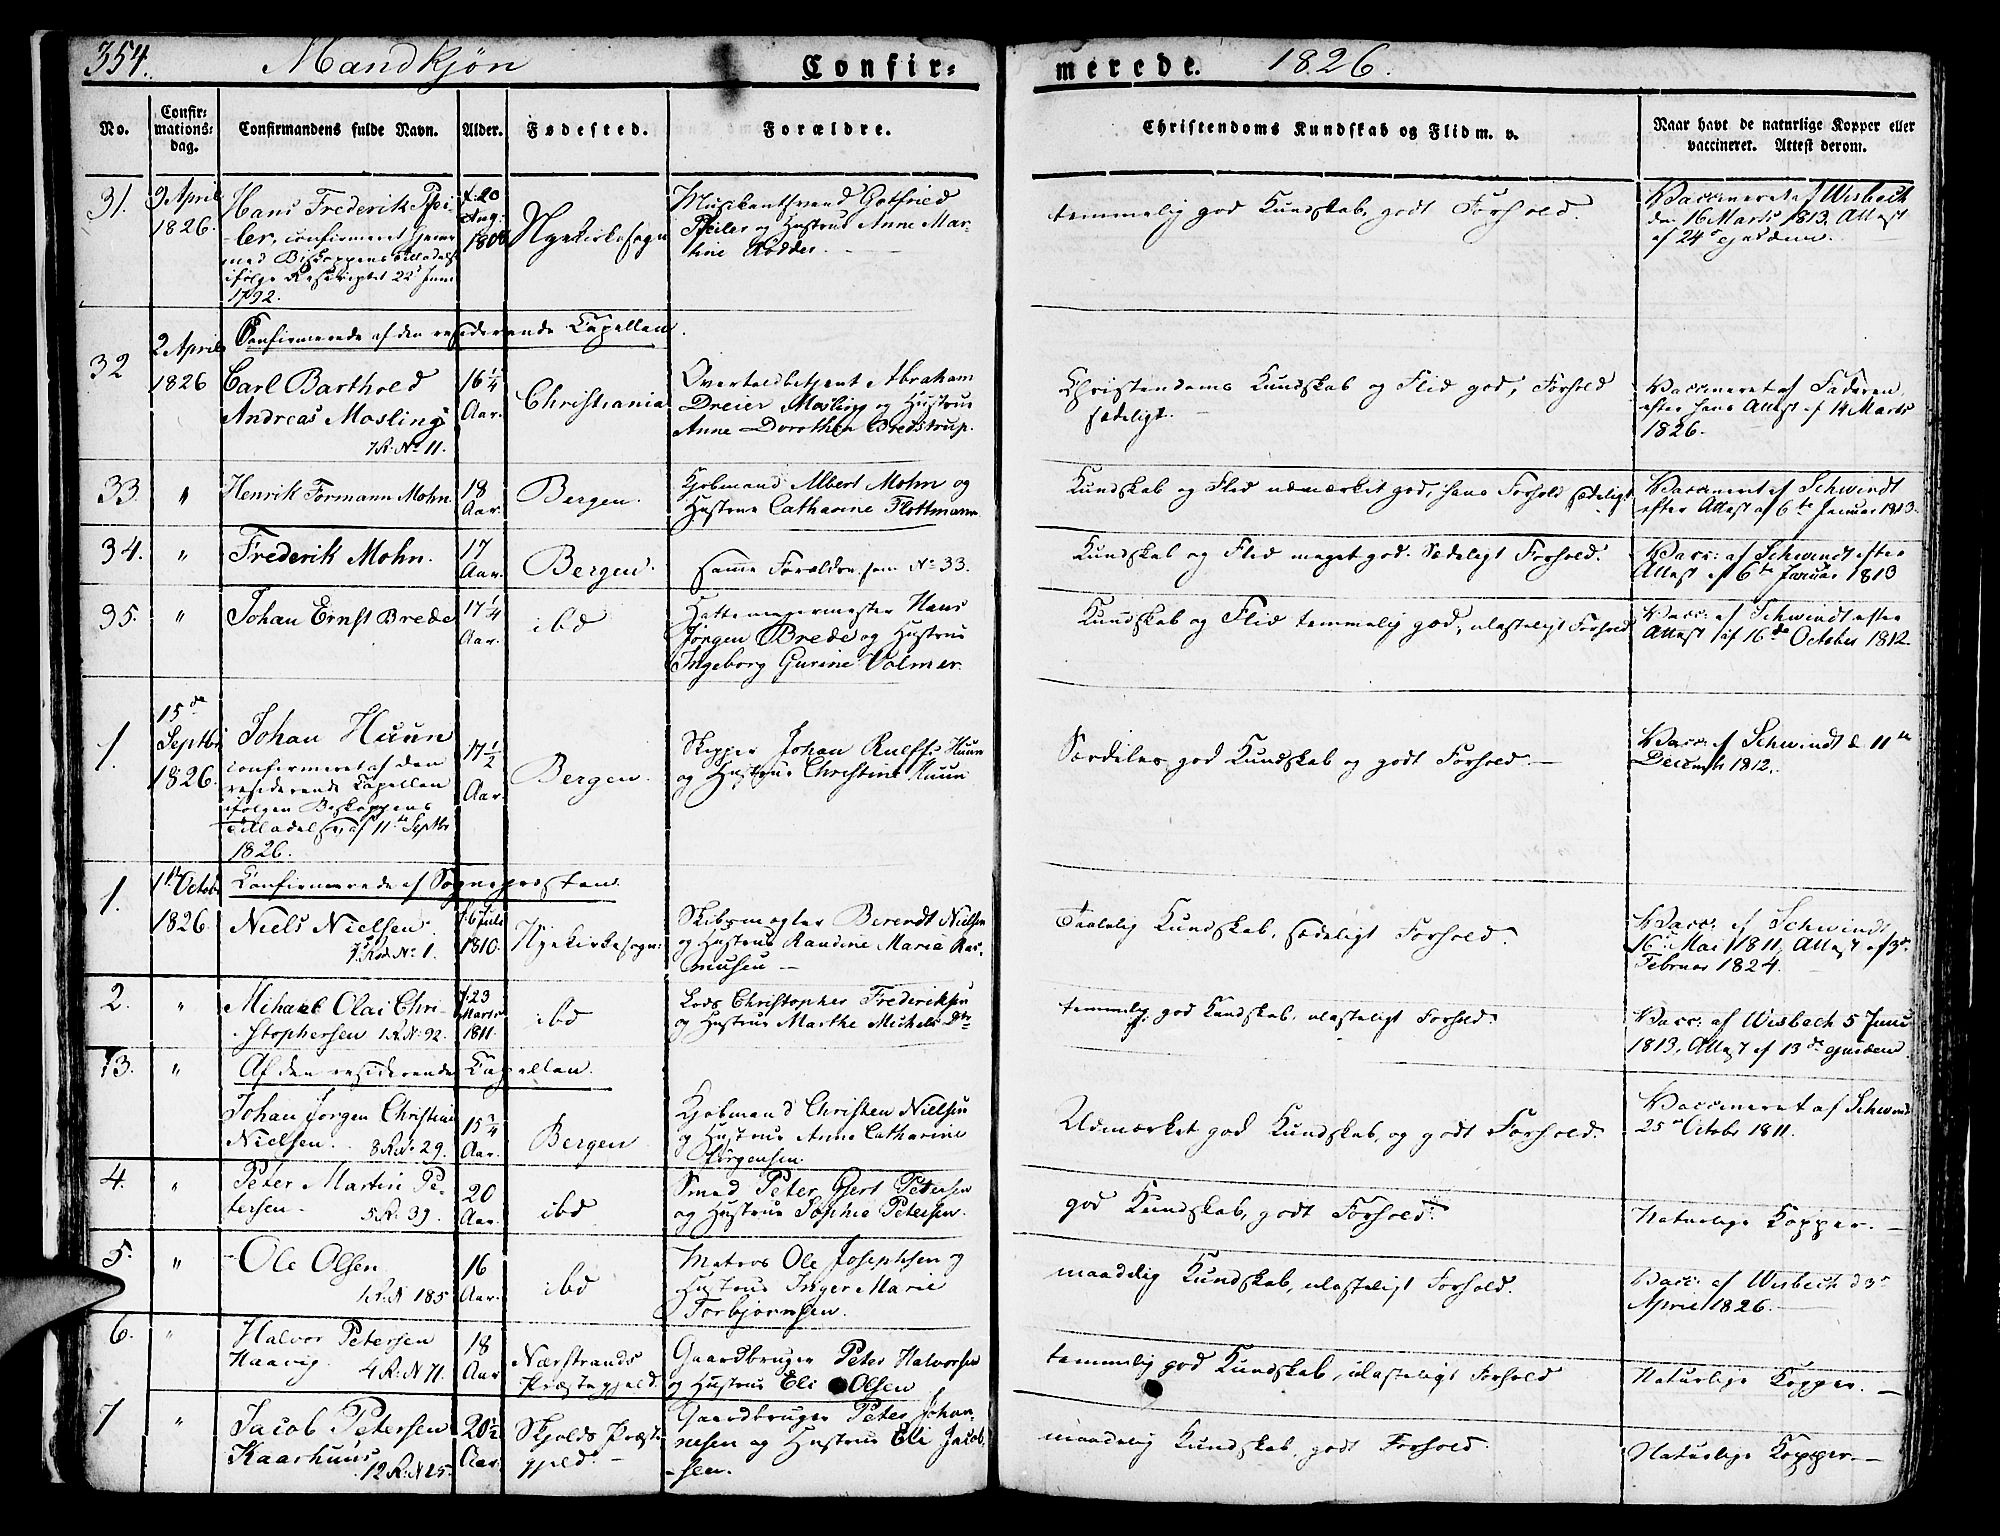 354. Mandkjøn Confir-
merede. 1826.
No.
Confir-
mations-
dag.
Confirmandens fulde Navn.
Alder.
Fødested.
Forældre.
Christendoms Kundskab og Flid m. v.
Naar havt de naturlige Kopper eller
vaccineret. Attest derom.
31.
9 April
1826.
Hans Frederik Pfei
-ler, confirmeret hjemme
med Biskoppens Tilladelse
ifølge Rescriptet 22d Juni
1792.
f. 20
Aug:
Nyekirkesogn
Musikantsvend Gotfried
Pfeiler og Hustrue Anne Mar-
tine Rødder.
temmelig god Kundskab, godt Forhold.
Vaccineret af Wisbech
den 16 Marts 1813. Attest
af 24de ejusdem.
Confirmerede af den residerende Capellan.
32
2 April
1826
Carl Barthold
Andreas Mosling
7 R. No 11.
16 1/4
Aar.
Christiania
Overtoldbetjent Abraham
Dreier Mosling og Hustrue
Anne Dorothea Bredstrup.
Christendoms Kundskab og Flid god, Forhold
sædeligt.
Vaccineret af Faderen
efter hans Attest af 14 Marts
1826.
33.
"
Henrik Formann Mohn.
18
Aar.
Bergen.
Kjøbmand Albert Mohn og
Hustrue Catharine Flottmann
Kundskab og Flid udmærket god, hans Forhold sædeligt
Vaccineret af Schwindt
efter Attest af 6te Januar 1813.
34.
"
Frederik Mohn.
17
Aar.
Bergen.
samme Forældre som No 33.
Kundskab og Flid meget god. Sædeligt Forhold.
Vacc: af Schwindt efter
Attest af 6te Januar 1813
35.
"
Johan Ernst Brede
17 1/4
Aar.
ibd
Hattemagermester Hans
Jörgen Brede og Hustrue
Ingeborg Gurine Volmer.
Kundskab og Flid temmelig god, ulasteligt Forhold
Vacc: af Schwindt efter
Attest af 16de October 1812.
1.
15de
Septbr
1826.
Johan Huun
confirmeret af den
residerende Capellan
ifølge Biskoppens
Tilladelse af 11te Septbr
1826.
17 1/2
Aar.
Bergen.
Skipper Johan Rulffs Huun
og Hustrue Christine Huun
Særdeles god Kundskab og godt Forhold.
Vacc: af Schwindt d 11te
Decemb 1812.
1.
1te Octob
1826.
Confirmerede af Sognepræsten.
Niels Nielsen.
No 1.
f. 6 Juli
1810.
Nyekirkesogn.
Skibsmægler Berendt Nielsen
og Hustrue Randine Marie Ras-
musen
Taalelig Kundskab, sædeligt Forhold.
Vacc: af Schwindt
16 Mai 1811. Attest af 3de
Februar 1824.
2.
"
Michael Olai Chri-
stophersen 1 R. No 92.
f. 23
Marts
1811.
ibd
Lods Christopher Frederiksen
og Hustrue Marthe Michelsdtr
temmelig god Kundskab, ulasteligt Forhold.
Vacc: af Wisbech 5 Juni
1813, Attest af 13de ejusdem.
3.
"
Af den residerende Capellan.
Johan Jørgen Christian
Nielsen. 8 R. No 29.
15 3/4
Aar.
Bergen
Kjøbmand Christen Nielsen
og Hustrue Anne Catharine
Jörgensen.
Udmærket god Kundskab, og godt Forhold.
Vaccineret af Schwindt
25de Octobr 1811.
4.
"
Peter Martin Pe-
tersen. 5 R. 39.
20
Aar.
ibd
Smed Peter Gjert Petersen
og Hustrue Sophie Petersen.
god Kundskab, godt Forhold.
Naturlige Kopper.
5.
"
Ole Olsen
R. N 185
16
Aar.
ibd
Matros Ole Josephsen og
Hustrue Inger Marie
Torbjørnsen.
maadelig Kundskab, ulasteligt Forhold.
Vacc: af Wisbech d 3de
April 1826.
6.
"
Halvor Petersen
Haavig. 4 R. N 71.
18
Aar
Nærstrands
Præstegjeld.
Gaardbruger Peter Halvorsen
og Hustrue Eli Olsen
temmelig god Kundskab, ulasteligt Forhold
Naturlige Kopper.
7
"
Jacob Petersen
Kaarhuus 12 R. N 25.
20 1/2
Aar.
Skjolds Præste-
gjeld.
Gaardbruger Peter Johan-
nesen og Hustrue Eli Jacob
-sen.
maadelig Kundskab, godt Forhold.
Naturlige Kopper.